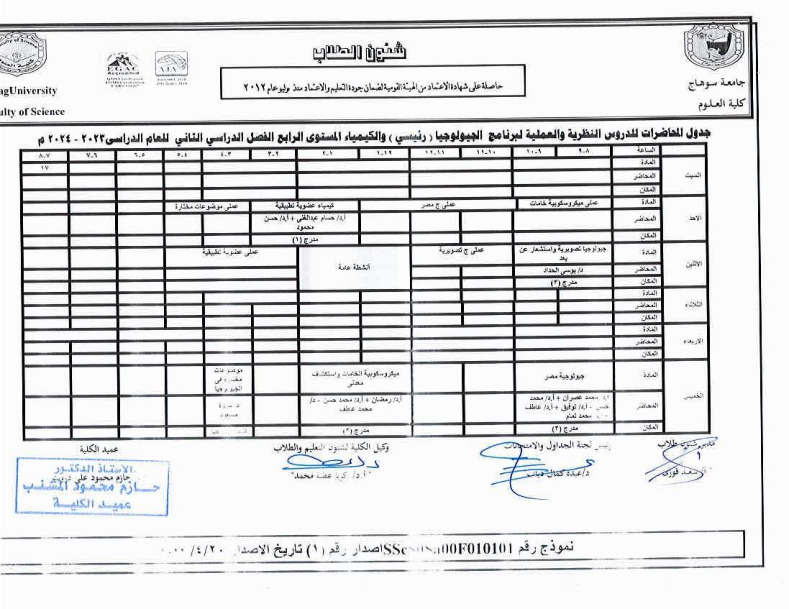 شئون الطلاب
حاصلة على شهادة الاعتماد من الهيئة القومية لضمان جودة التعليم والاعتماد منذ يوليو عام ٢٠١٢
جامعة سوهاج
كلية العلوم
agUniversity
ulty of Science
جدول المحاضرات للدروس النظرية والعملية لبرنامج الجيولوجيا ( رئيسي ) والكيمياء المستوى الرابع الفصل الدراسي الثاني للعام الدراسى ٢٠٢٣ - ٢٠٢٤ م
الساعة ٨-٩ ٩-١٠ ١٠-١١ ١١-١٢ ١٢-١ ١-٢ ٢-٣ ٣-٤ ٤-٥ ٥-٦ ٦-٧ ٧-٨
السبت
المادة ١٧
المحاضر
المكان
الاحد
المادة عملى ميكروسكوبية خامات عملى ج مصر كيمياء عضوية تطبيقية عملى موضوعات مختارة
المحاضر أ.د/ حسام عبدالغنى + أ.د/ حسن محمود
المكان مدرج (١)
الاثنين
المادة جيولوجيا تصويرية واستشعار عن بعد عملى ج تصويرية أنشطة عامة عملى عضوية تطبيقية
المحاضر د/ بوسى الحداد
المكان مدرج (٣)
الثلاثاء
المادة
المحاضر
المكان
الاربعاء
المادة
المحاضر
المكان
الخميس
المادة جيولوجية مصر ميكروسكوبية الخامات واستكشاف معدنى موضوعات مختارة فى الجيولوجيا
المحاضر محمد عمران + أ.د/ محمد حسن - أ.د/ توفيق + أ.د/ عاطف محمد تمام أ.د/ رمضان + أ.د/ محمد حسن - د/ محمد عاطف
المكان مدرج (٣) مدرج (٣)
مدير شئون طلاب
رئيس لجنة الجداول والامتحانات
وكيل الكلية لشئون التعليم والطلاب
عميد الكلية
سعد فوزى
د/عبده كمال دياب
حازم محمود على
الأستاذ الدكتور
حازم محمود المشنب
عميد الكلية
نموذج رقم SSc اصدار رقم (١) تاريخ الاصدار